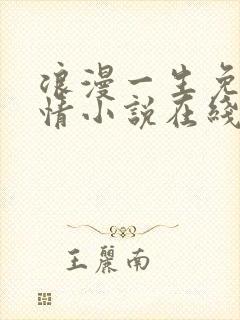 浪漫一生免
情小説在綫
王麗南